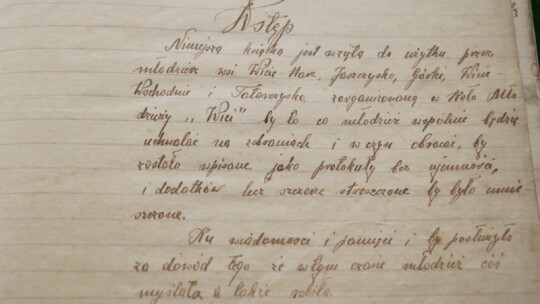 Wstęp
Niniejsza książka jest wzięta do użytku przez
młodzież wsi Wicie Stare, Jaszczysko, Górki, Wicie
Wschodnie i zorganizowaną w Koło Mło
dzieży „Wici” by to co młodzież wspólnie będzie
uchwalać na zebraniach i w czyn obracać, by
zostało wpisane jako protokuły bez ujemności,
i dodatków lecz szczere streszczone by było umie
szczone.
Ku wiadomości i pamięci i by posłużyło
za dowód tego że w tym czasie młodzież coś
myślała a także robiła.